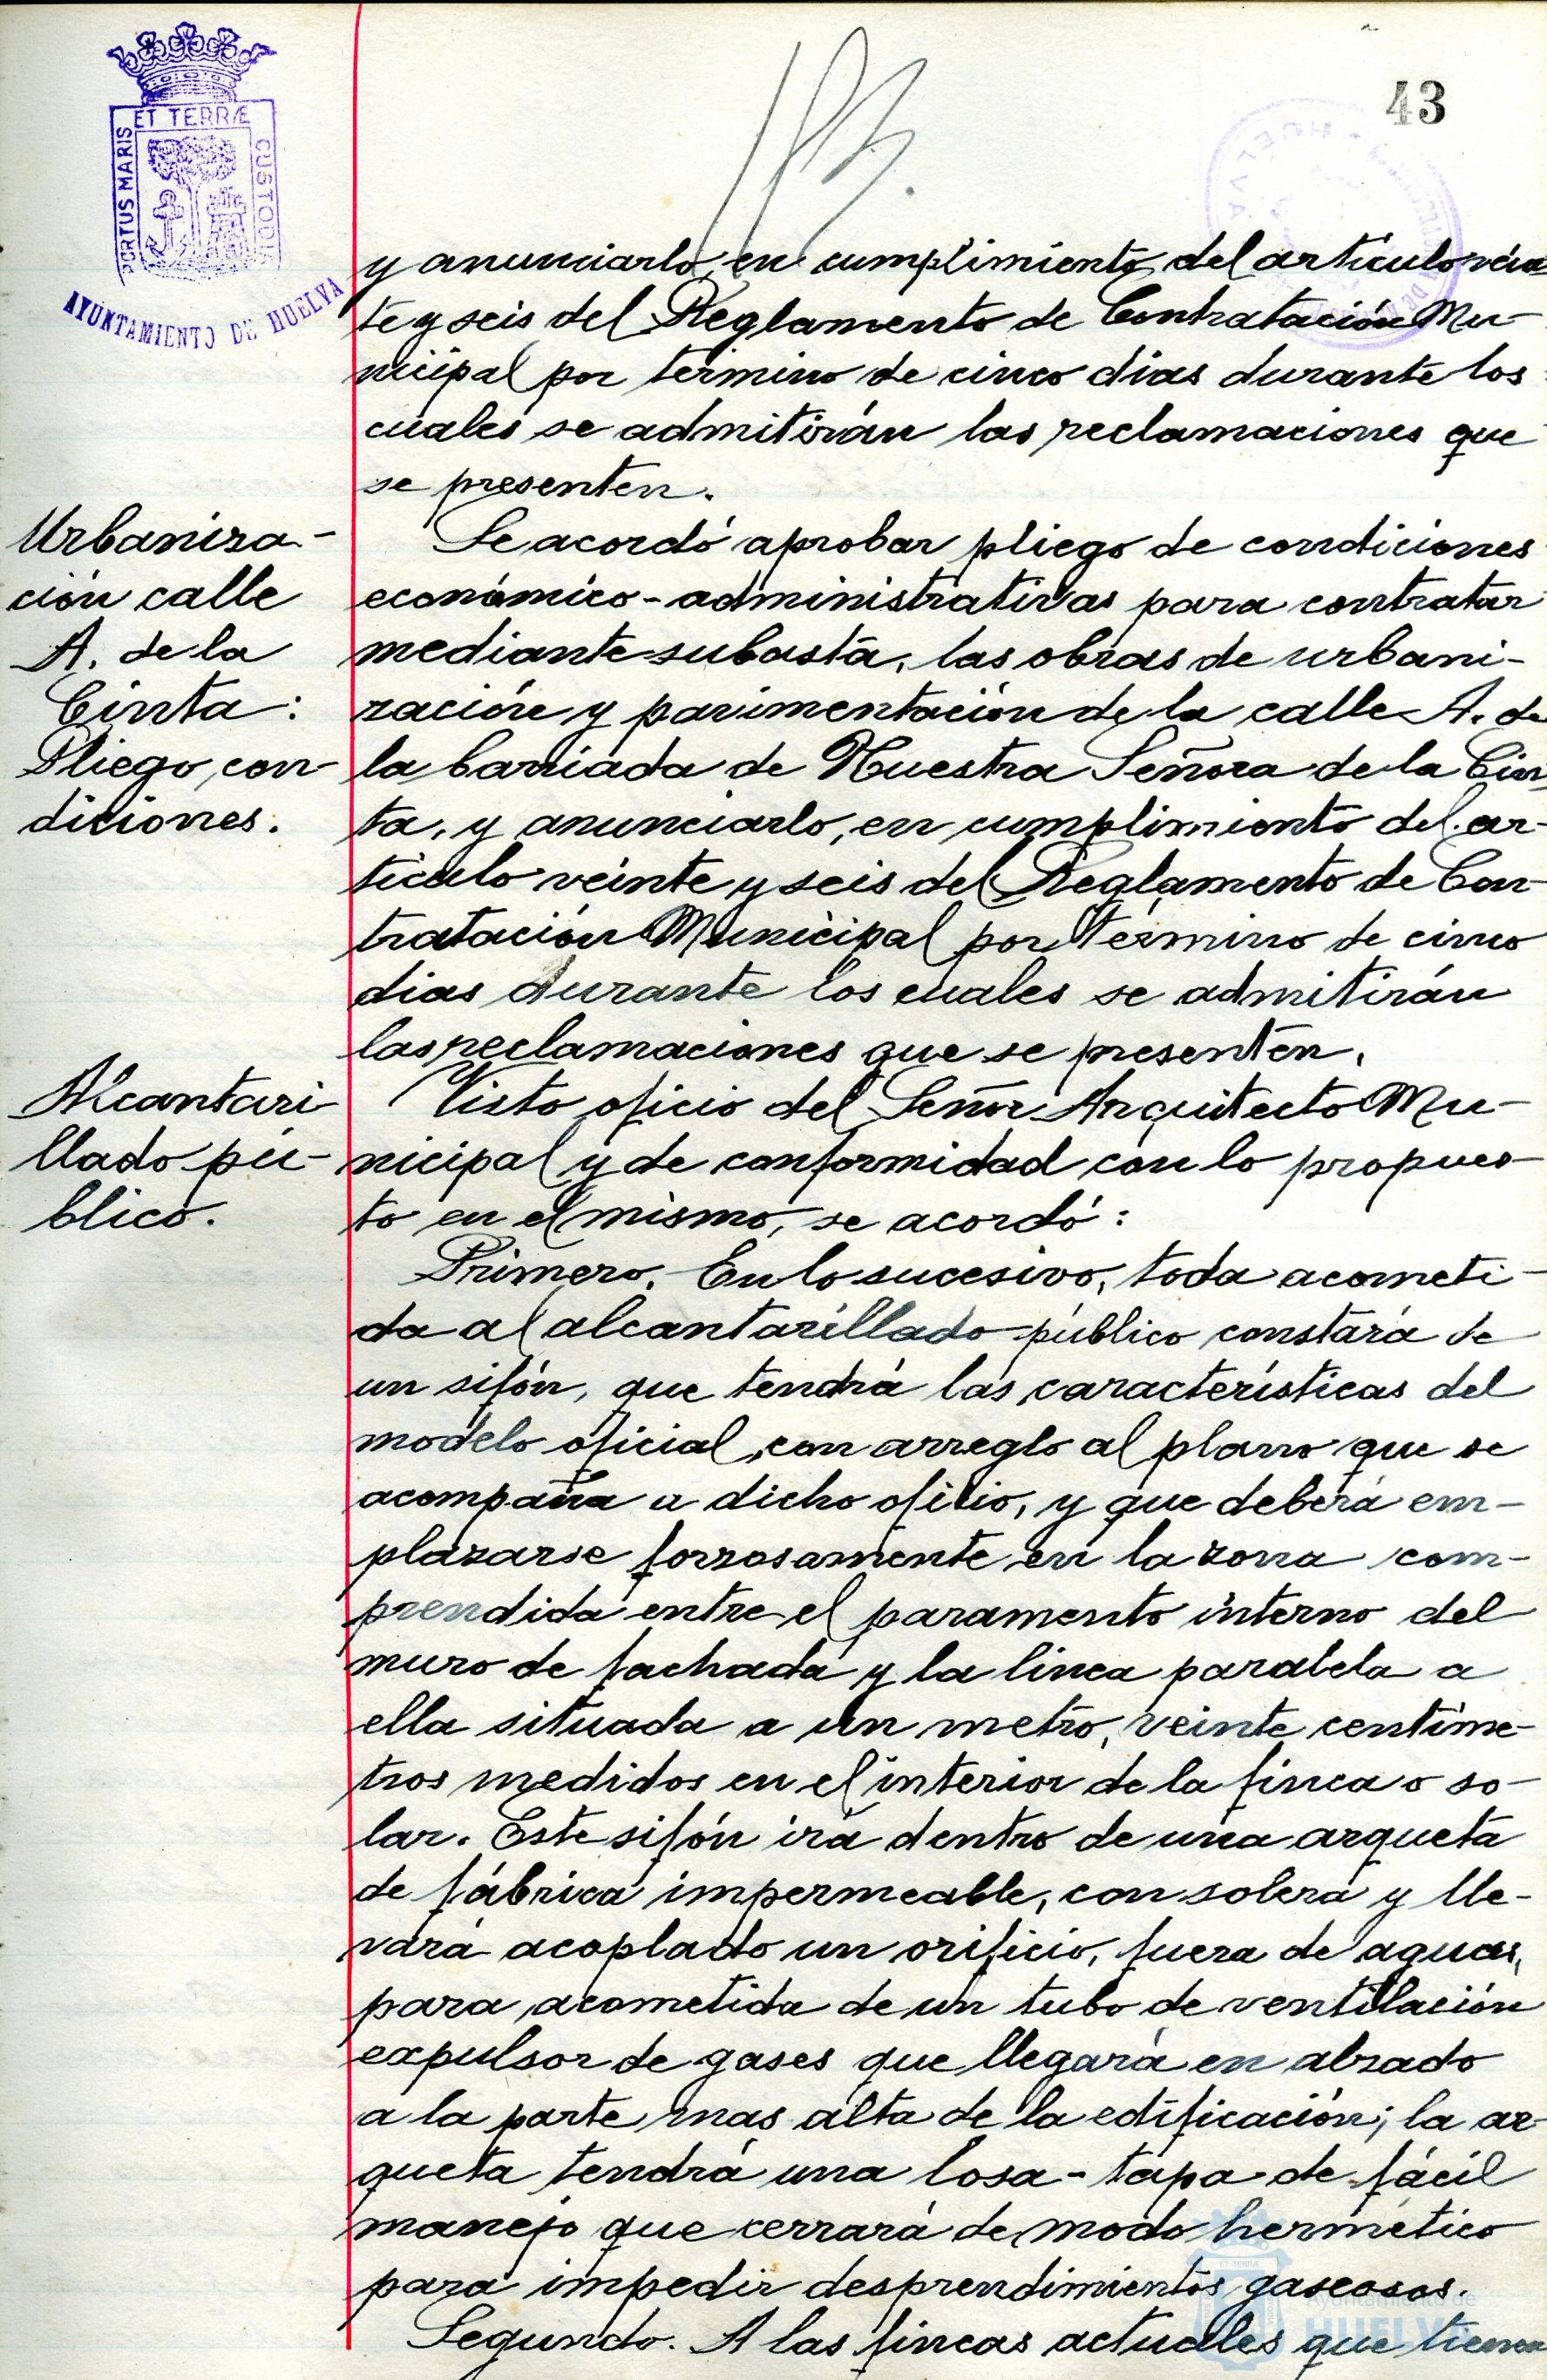 43
ET TERRÆ
PORTUS MARIS
CUSTODIA
AYUNTAMIENTO DE HUELVA
y anunciarlo, en cumplimiento del articulo vein
te y seis del Reglamento de Contratación Mu-
nicipal por término de cinco dias durante los
cuales se admitirán las reclamaciones que
se presenten.
Urbaniza-
ción calle
A. de la
Cinta:
Pliego con-
diciones.
Se acordó aprobar pliego de condiciones
económico-administrativas para contratar
mediante subasta, las obras de urbani-
zación y pavimentación de la calle A. de
la barriada de Nuestra Señora de la Cin
ta, y anunciarlo, en cumplimiento del ar-
ticulo veinte y seis del Reglamento de Con-
tratación Municipal por término de cinco
dias durante los cuales se admitirán
las reclamaciones que se presenten.
Alcantari
llado pú-
blico.
Visto oficio del Señor Arquitecto Mu-
nicipal y de conformidad con lo propues-
to en el mismo, se acordó:
Primero. En lo sucesivo, toda acometi-
da al alcantarillado público constará de
un sifón, que tendrá las características del
modelo oficial, con arreglo al plano que se
acompaña a dicho oficio, y que deberá em-
plazarse forzosamente en la zona com-
prendida entre el paramento interno del
muro de fachada y la linea paralela a
ella situada a un metro, veinte centíme-
tros medidos en el interior de la finca o so-
lar. Este sifón irá dentro de una arqueta
de fábrica impermeable, con solera y lle-
vará acoplado un orificio, fuera de aguas,
para acometida de un tubo de ventilación
expulsor de gases que llegará en alzado
a la parte mas alta de la edificación; la ar-
queta tendrá una losa-tapa de fácil
manejo que cerrará de modo hermético
para impedir desprendimientos gaseosos.
Segundo. A las fincas actuales que tienen
Ayuntamiento de
HUELVA